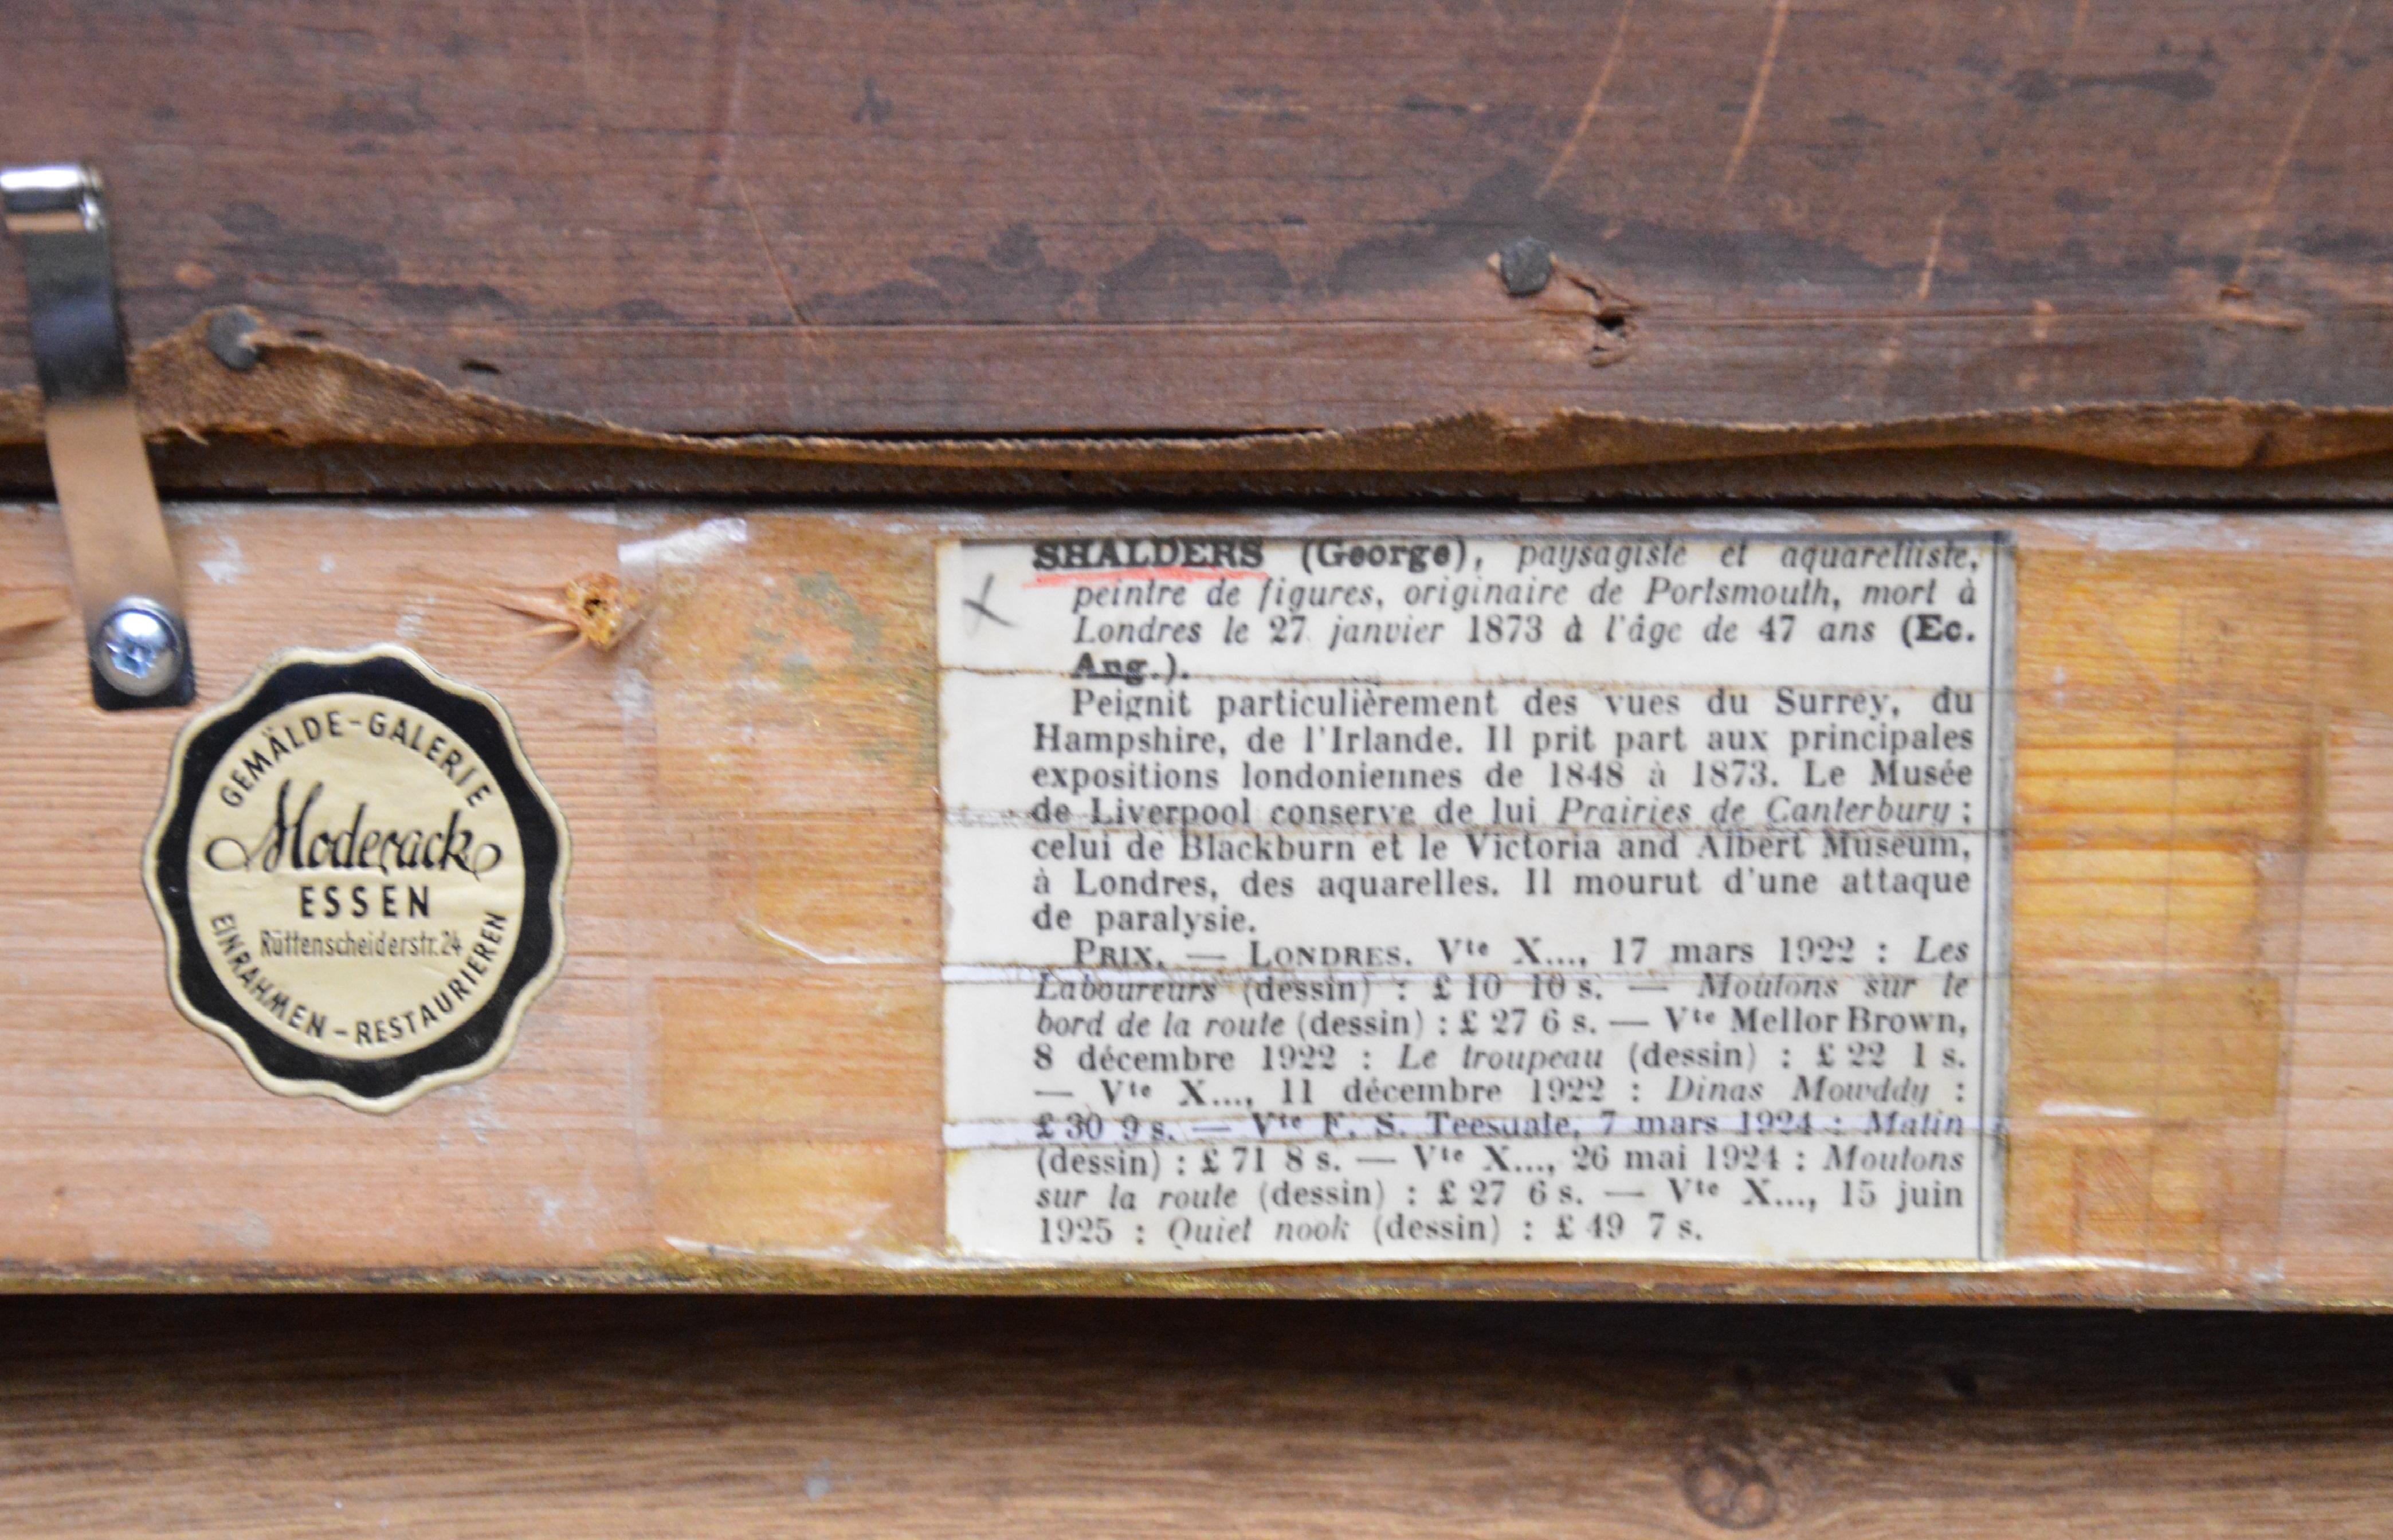 GEMÄLDE-GALERIE
Moderack
ESSEN
Rüttenscheiderstr.24
EINRAHMEN-RESTAURIEREN
SHALDERS (George), paysagiste et aquarelliste,
peintre de figures, originaire de Portsmouth, mort à
Londres le 27 janvier 1873 à l'âge de 47 ans (Ec.
Ang.).
Peignit particulièrement des vues du Surrey, du
Hampshire, de l'Irlande. Il prit part aux principales
expositions londoniennes de 1848 à 1873. Le Musée
de Liverpool conserve de lui Prairies de Canterbury ;
celui de Blackburn et le Victoria and Albert Museum,
à Londres, des aquarelles. Il mourut d'une attaque
de paralysie.
PRIX. — LONDRES. Vte X..., 17 mars 1922 : Les
Laboureurs (dessin) : £ 10 10 s. — Moutons sur le
bord de la route (dessin) : £ 27 6 s. — Vte Mellor Brown,
8 décembre 1922 : Le troupeau (dessin) : £ 22 1 s.
— Vte X..., 11 décembre 1922 : Dinas Mowddy :
£ 30 9 s. — Vte F. S. Teesdale, 7 mars 1924 : Matin
(dessin) : £ 71 8 s. — Vte X..., 26 mai 1924 : Moutons
sur la route (dessin) : £ 27 6 s. — Vte X..., 15 juin
1925 : Quiet nook (dessin) : £ 49 7 s.